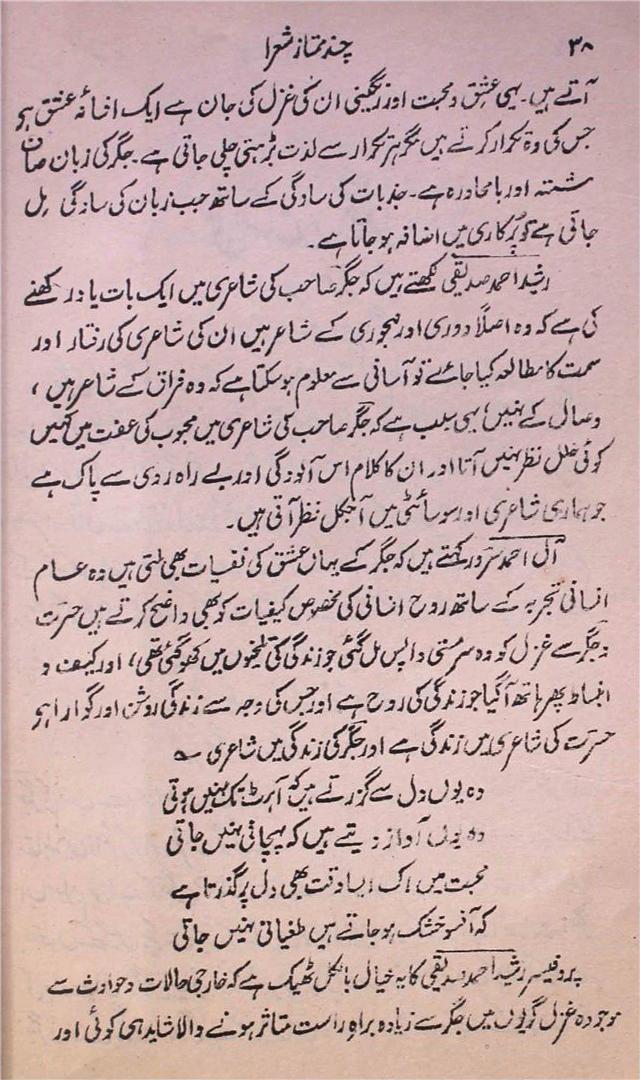 ۳۸
چند ممتاز شعرا
آتے ہیں۔ یہی عشق و محبت اور رنگینی ان کی غزل کی جان ہے ایک افسانۂ عشق ہو
جس کی وہ تکرار کرتے ہیں مگر ہر تکرار سے لذت بڑھتی چلی جاتی ہے۔ جگر کی زبان صاف
شستہ اور بامحاورہ ہے۔ جذبات کی سادگی کے ساتھ جب زبان کی سادگی مل
جاتی ہے تو پرکاری میں اضافہ ہو جاتا ہے۔
رشید احمد صدیقی لکھتے ہیں کہ جگر صاحب کی شاعری میں ایک بات یاد رکھنے
کی ہے کہ وہ اصلاً دوری اور مہجوری کے شاعر ہیں ان کی شاعری کی رفتار اور
سمت کا مطالعہ کیا جائے تو آسانی سے معلوم ہو سکتا ہے کہ وہ فراق کے شاعر ہیں،
وصال کے نہیں، یہی سبب ہے کہ جگر صاحب کی شاعری میں محبوب کی عفت میں کہیں
کوئی خلل نظر نہیں آتا اور ان کا کلام اس آلودگی اور بے راہ روی سے پاک ہے
جو ہماری شاعری اور سوسائٹی میں آجکل نظر آتی ہیں۔
آل احمد سرور کہتے ہیں کہ جگر کے یہاں عشق کی نفسیات بھی ملتی ہیں وہ عام
انسانی تجربہ کے ساتھ روح انسانی کی مخصوص کیفیات کو بھی واضح کرتے ہیں حسرت
و جگر سے غزل کو وہ سرمستی واپس مل گئی جو زندگی کی تلخیوں میں کھو گئی تھی، اور کیف و
انبساط پھر ہاتھ آ گیا جو زندگی کی روح ہے اور جس کی وجہ سے زندگی روشن اور گوارا ہو
حسرت کی شاعری میں زندگی ہے اور جگر کی زندگی میں شاعری ؎
وہ یوں دل سے گزرتے ہیں کہ آہٹ تک نہیں ہوتی
وہ یوں آواز دیتے ہیں کہ پہچانی نہیں جاتی
محبت میں اک ایسا وقت بھی دل پر گذرتا ہے
کہ آنسو خشک ہو جاتے ہیں طغیانی نہیں جاتی
پروفیسر رشید احمد صدیقی کا یہ خیال بالکل ٹھیک ہے کہ خارجی حالات و حوادث سے
موجودہ غزل گویوں میں جگر سے زیادہ براہِ راست متاثر ہونے والا شاید ہی کوئی اور